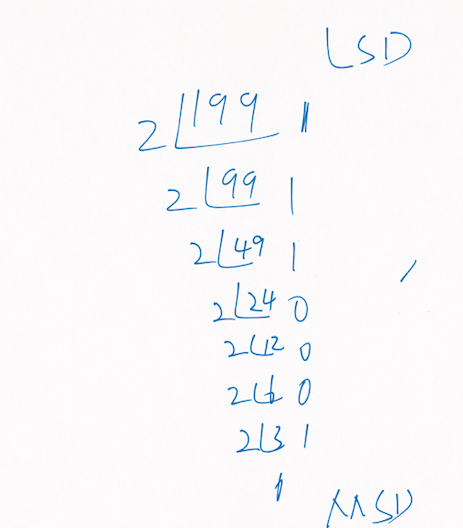 LSD
2 199 1
2 99 1
2 49 1
2 24 0
2 12 0
2 6 0
2 3 1
1
MSD